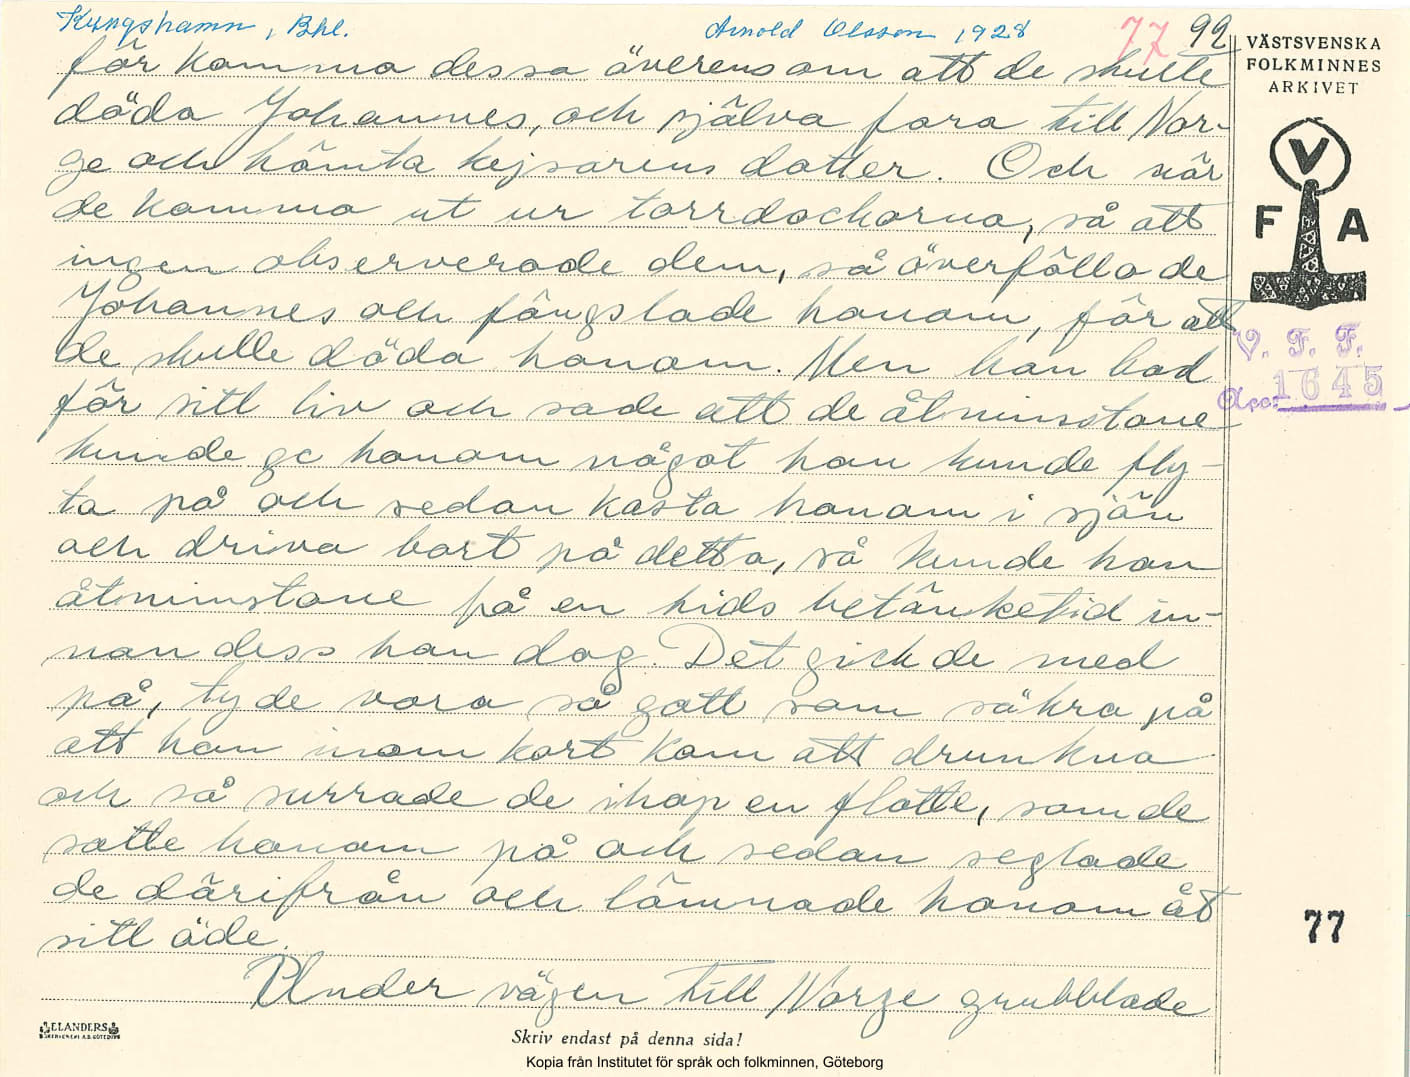 Kungshamn, Bhl. Arnold Olsson 1928 77 92
VÄSTSVENSKA
FOLKMINNES
ARKIVET
V
F A
V. F. F.
Acc: 1645
för komma dessa överens om att de skulle
döda Johannes, och själva fara till Nor-
ge och hämta kejsarens dotter. Och när
de komma ut ur torrdockorna, så att
ingen observerade dem, så överfölla de
Johannes och fängslade honom, för att
de skulle döda honom. Men han bad
för sitt liv och sade att de åtminstone
kunde ge honom något han kunde fly-
ta på och sedan kasta honom i sjön
och driva bort på detta, så kunde han
åtminstone få en tids betänketid in-
nan dess han dog. Det gick de med
på, ty de voro så gott som säkra på
att han inom kort kom att drunkna
och så surrade de ihop en flotte, som de
satte honom på och sedan seglade
de därifrån och lämnade honom åt
sitt öde.
Under vägen till Norge grubblade
77
ELANDERS
Skriv endast på denna sida!
Kopia från Institutet för språk och folkminnen, Göteborg